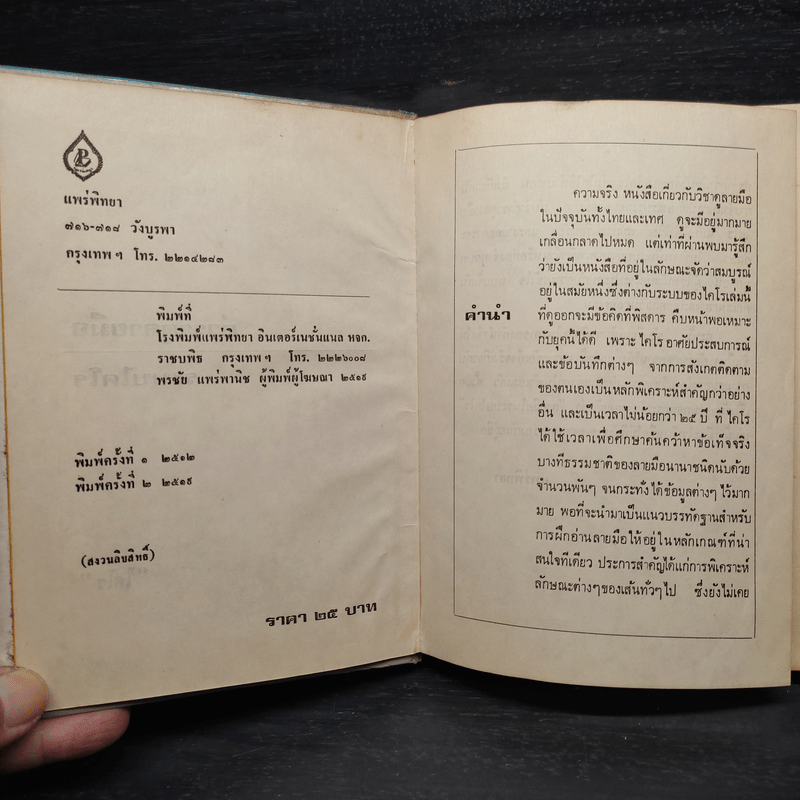 แพร่พิทยา
๗๑๖-๗๑๘ วังบูรพา
กรุงเทพฯ โทร. ๒๒๑๔๒๘๓
พิมพ์ที่
โรงพิมพ์แพร่พิทยา อินเตอร์เนชั่นแนล หจก.
ราชบพิธ กรุงเทพฯ โทร. ๒๒๒๖๐๐๘
พรชัย แพร่พานิช ผู้พิมพ์ผู้โฆษณา ๒๕๑๙
พิมพ์ครั้งที่ ๑ ๒๕๑๒
พิมพ์ครั้งที่ ๒ ๒๕๑๙
(สงวนลิขสิทธิ์)
ราคา ๒๕ บาท
คำนำ
ความจริง หนังสือเกี่ยวกับวิชาดูลายมือ
ในปัจจุบันทั้งไทยและเทศ ดูจะมีอยู่มากมาย
เกลื่อนกลาดไปหมด แต่เท่าที่ผ่านพบมารู้สึก
ว่ายังเป็นหนังสือที่อยู่ในลักษณะจัดว่าสมบูรณ์
อยู่ในสมัยหนึ่งซึ่งต่างกับระบบของไคโรเล่มนี้
ที่ดูออกจะมีข้อคิดที่พิสดาร คืบหน้าพอเหมาะ
กับยุคนี้ได้ดี เพราะ ไคโร อาศัยประสบการณ์
และข้อบันทึกต่างๆ จากการสังเกตติดตาม
ของตนเองเป็นหลักพิเคราะห์สำคัญกว่าอย่าง
อื่น และเป็นเวลาไม่น้อยกว่า ๒๕ ปี ที่ ไคโร
ได้ใช้เวลาเพื่อศึกษาค้นคว้าหาข้อเท็จจริง
บางทีธรรมชาติของลายมือนานาชนิดนับด้วย
จำนวนพันๆ จนกระทั่งได้ข้อมูลต่างๆ ไว้มาก
มาย พอที่จะนำมาเป็นแนวบรรทัดฐานสำหรับ
การฝึกอ่านลายมือให้อยู่ในหลักเกณฑ์ที่น่า
สนใจทีเดียว ประการสำคัญได้แก่การพิเคราะห์
ลักษณะต่างๆของเส้นทั่วๆไป ซึ่งยังไม่เคย